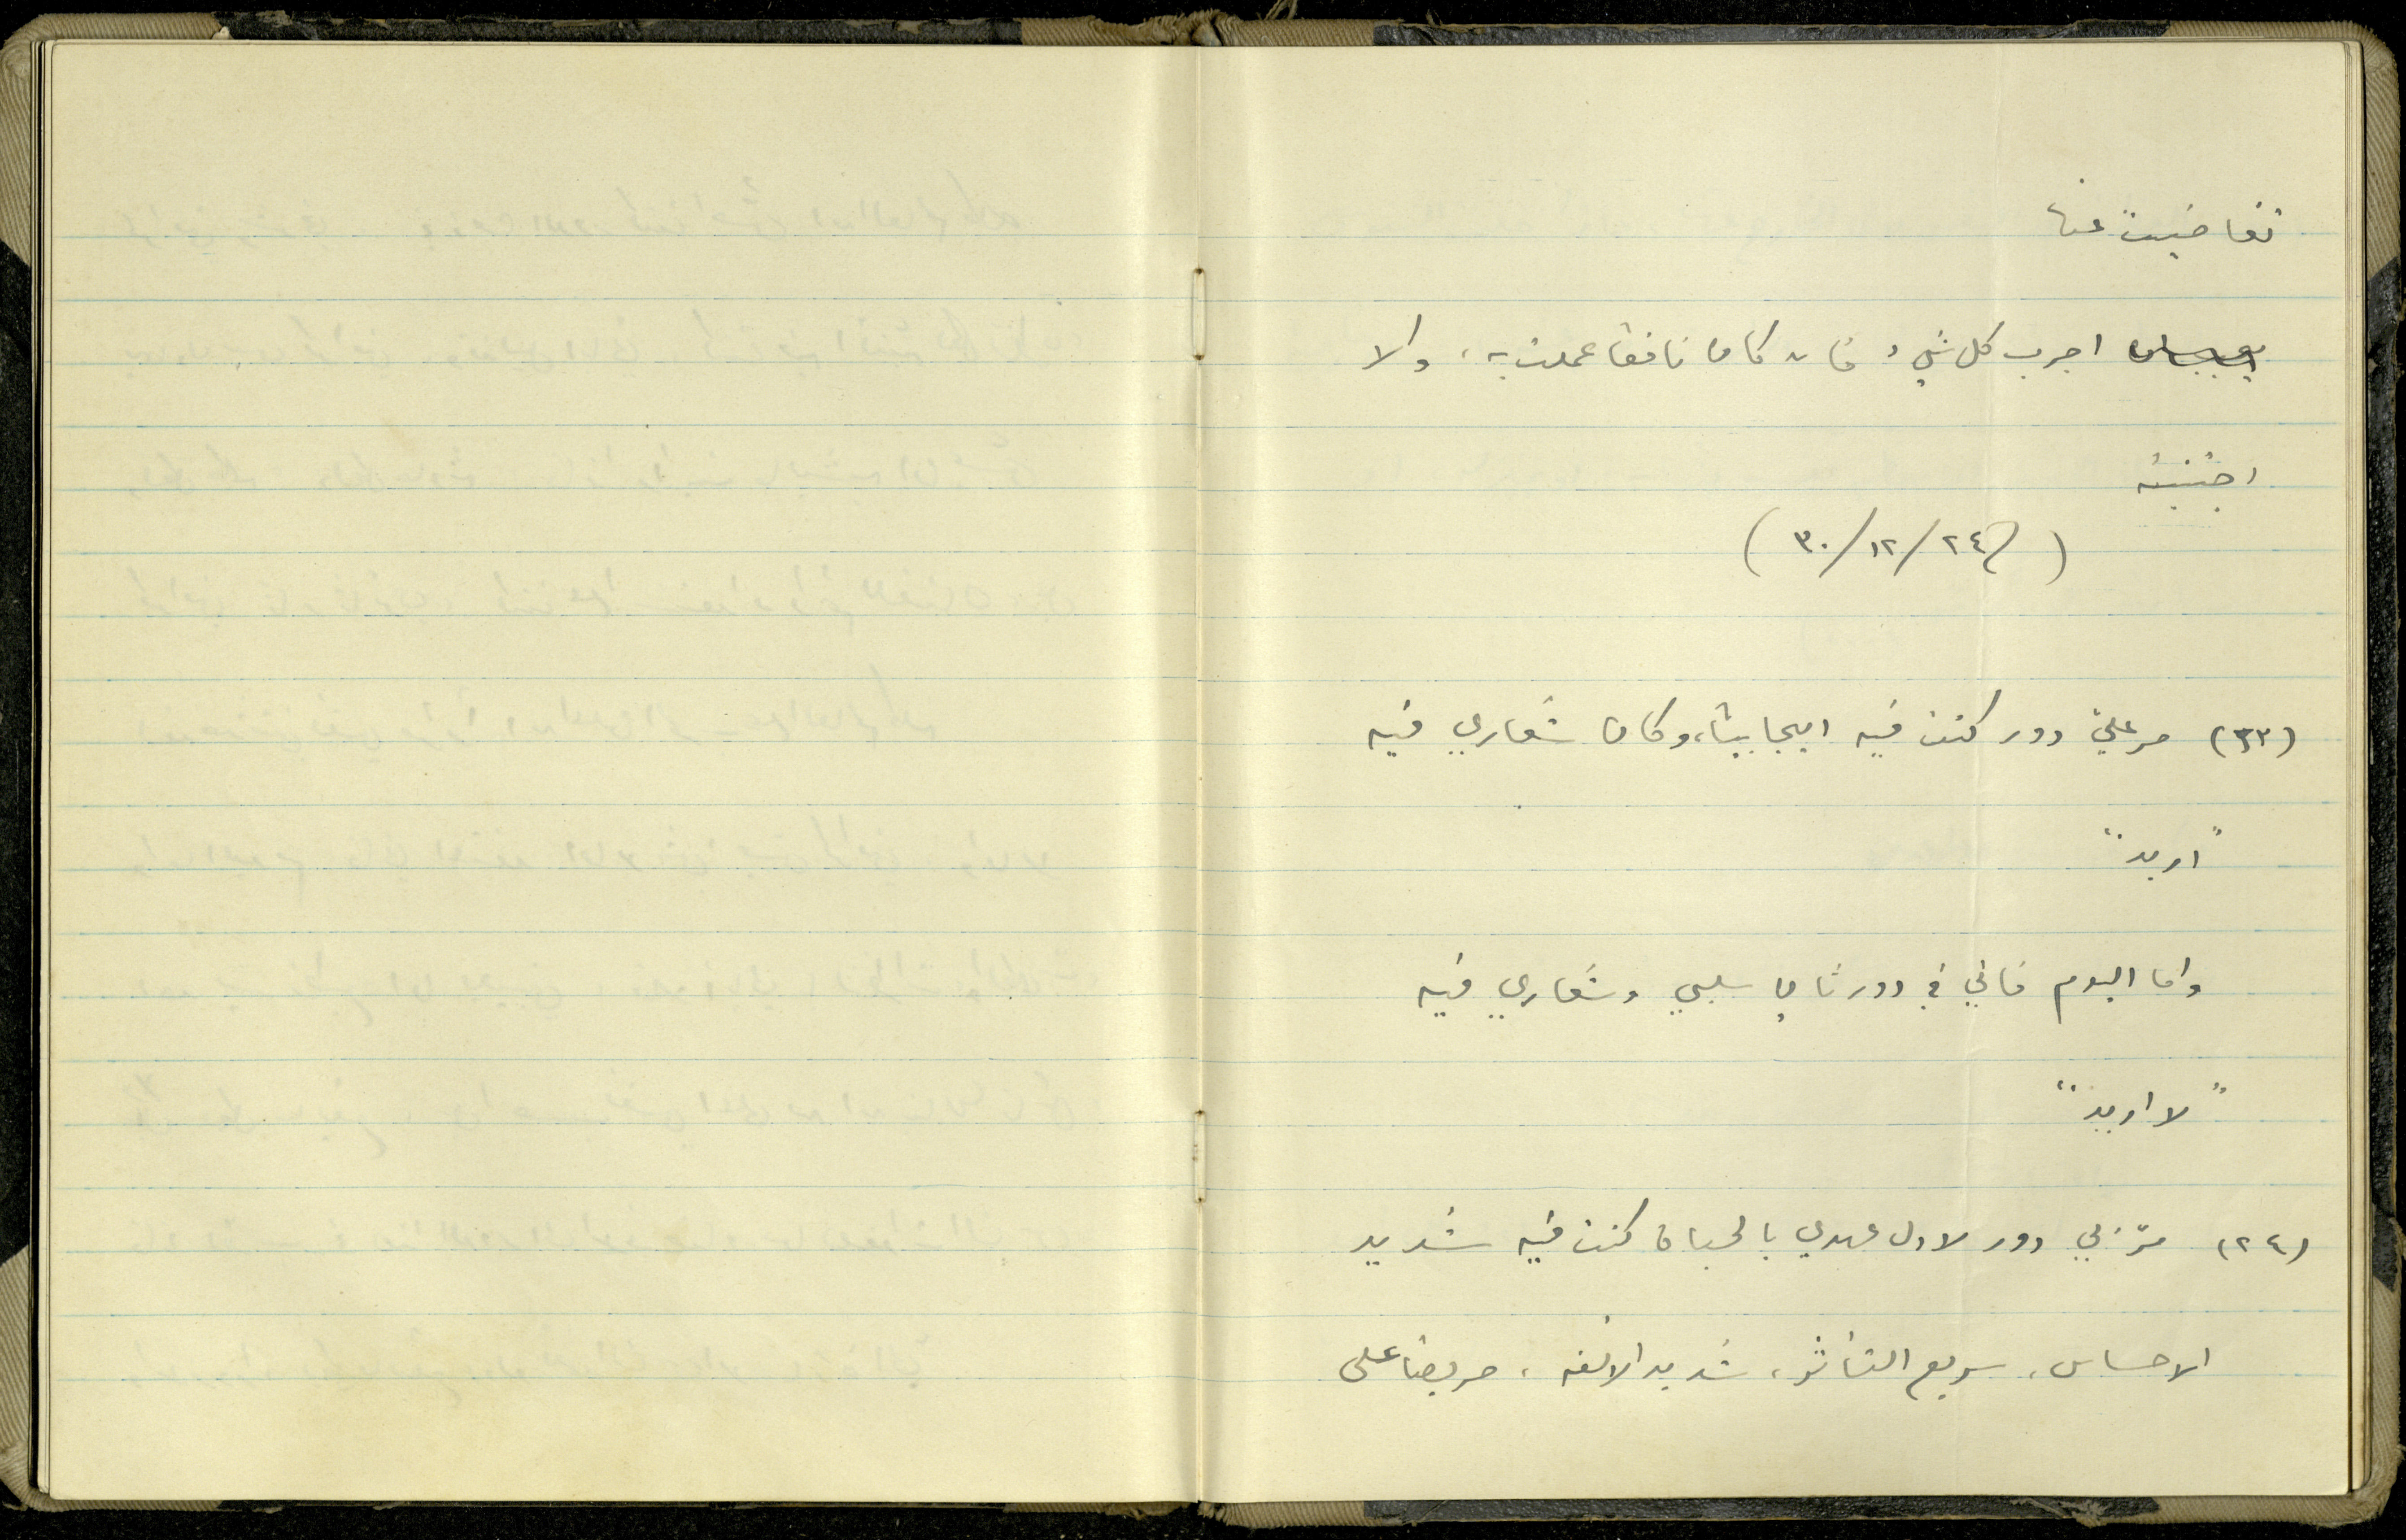 تغاضيت عنها
اجرب كل شيء فان كان نافعًا عملت به، والا
اجتنبته
(٣٠/١٢/٢٤)
(٢٣) مر عليّ دور كنت فيه ايجابيًا، وكان شعاري فيه
"اريد"
واما اليوم فاني في دور ثانٍ سلبي وشعاري فيه
"لا اريد"
(٢٤) مرّ بي دور لاول عهدي بالحياة كنت فيه شديد
الاحساس، سريع التأثر، شديد الانفه، حريصًا على